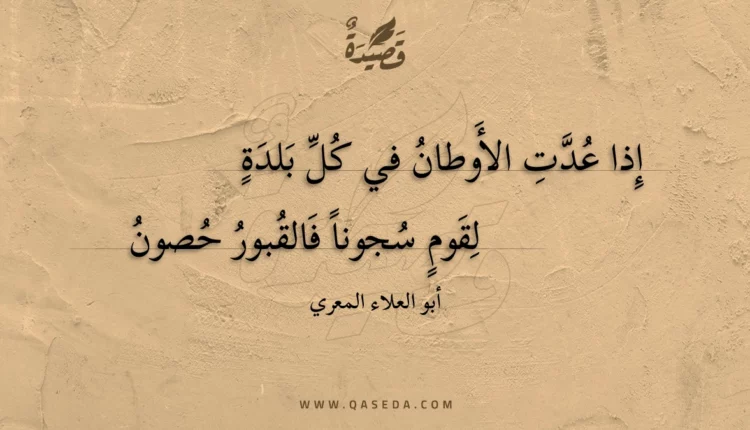 قَصِيدَةٌ
إِذا عُدَّتِ الأَوطانُ في كُلِّ بَلدَةٍ
لِقَومٍ سُجوناً فَالقُبورُ حُصونُ
أبو العلاء المعري
WWW.QASEDA.COM